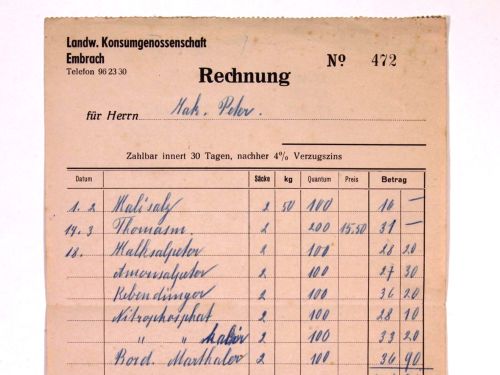 Landw. Konsumgenossenschaft
Embrach
Telefon 96 23 30
Rechnung
No 472
für Herrn Hak. Peter.
Zahlbar innert 30 Tagen, nachher 4% Verzugszins
Datum Säcke kg Quantum Preis Betrag
1. 2 Kalisalz 2 50 100 16 —
14. 3 Thomasm. 2 200 15.50 31 —
18. Kalksalpeter 2 100 28 20
Amonsalpeter 2 100 27 30
Rebendünger 2 100 36 20
Nitrophosphat 2 100 28 10
" " kabor 2 100 33 20
Bord. Marthaler 2 100 36 90